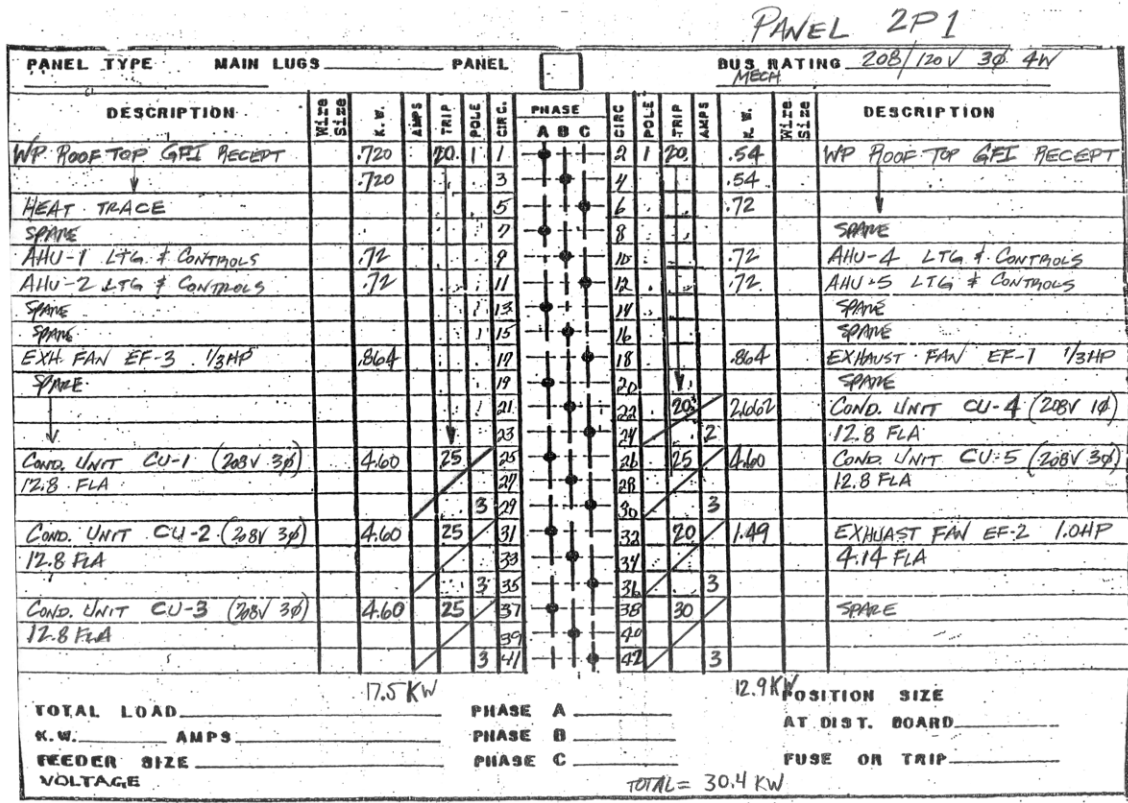 PANEL 2P1
PANEL TYPE MAIN LUGS PANEL BUS RATING 208/120V 3ø 4W
MECH
DESCRIPTION Wire Size K.W. AMPS TRIP POLE CIRC. PHASE A B C CIRC POLE TRIP AMPS K.W. Wire Size DESCRIPTION
WP ROOF TOP GFI RECEPT .720 20 1 1 2 1 20 .54 WP ROOF TOP GFI RECEPT
.720 3 4 .54
HEAT TRACE 5 6 .72
SPARE 7 8 SPARE
AHU-1 LTG & CONTROLS .72 9 10 .72 AHU-4 LTG & CONTROLS
AHU-2 LTG & CONTROLS .72 11 12 .72 AHU-5 LTG & CONTROLS
SPARE 13 14 SPARE
SPARE 15 16 SPARE
EXH. FAN EF-3 1/3HP .864 17 18 .864 EXHAUST FAN EF-1 1/3HP
SPARE 19 20 SPARE
21 22 20 2.662 COND. UNIT CU-4 (208V 1ø)
23 24 2 12.8 FLA
COND. UNIT CU-1 (208V 3ø) 4.60 25 25 26 25 4.60 COND. UNIT CU-5 (208V 3ø)
12.8 FLA 27 28 12.8 FLA
3 29 30 3
COND. UNIT CU-2 (208V 3ø) 4.60 25 31 32 20 1.49 EXHUAST FAN EF-2 1.0HP
12.8 FLA 33 34 4.14 FLA
3 35 36 3
COND. UNIT CU-3 (208V 3ø) 4.60 25 37 38 30 SPARE
12.8 FLA 39 40
3 41 42 3
17.5 KW 12.9 KW
TOTAL LOAD PHASE A POSITION SIZE
K.W. AMPS PHASE B AT DIST. BOARD
FEEDER SIZE PHASE C FUSE OR TRIP
VOLTAGE TOTAL = 30.4 KW